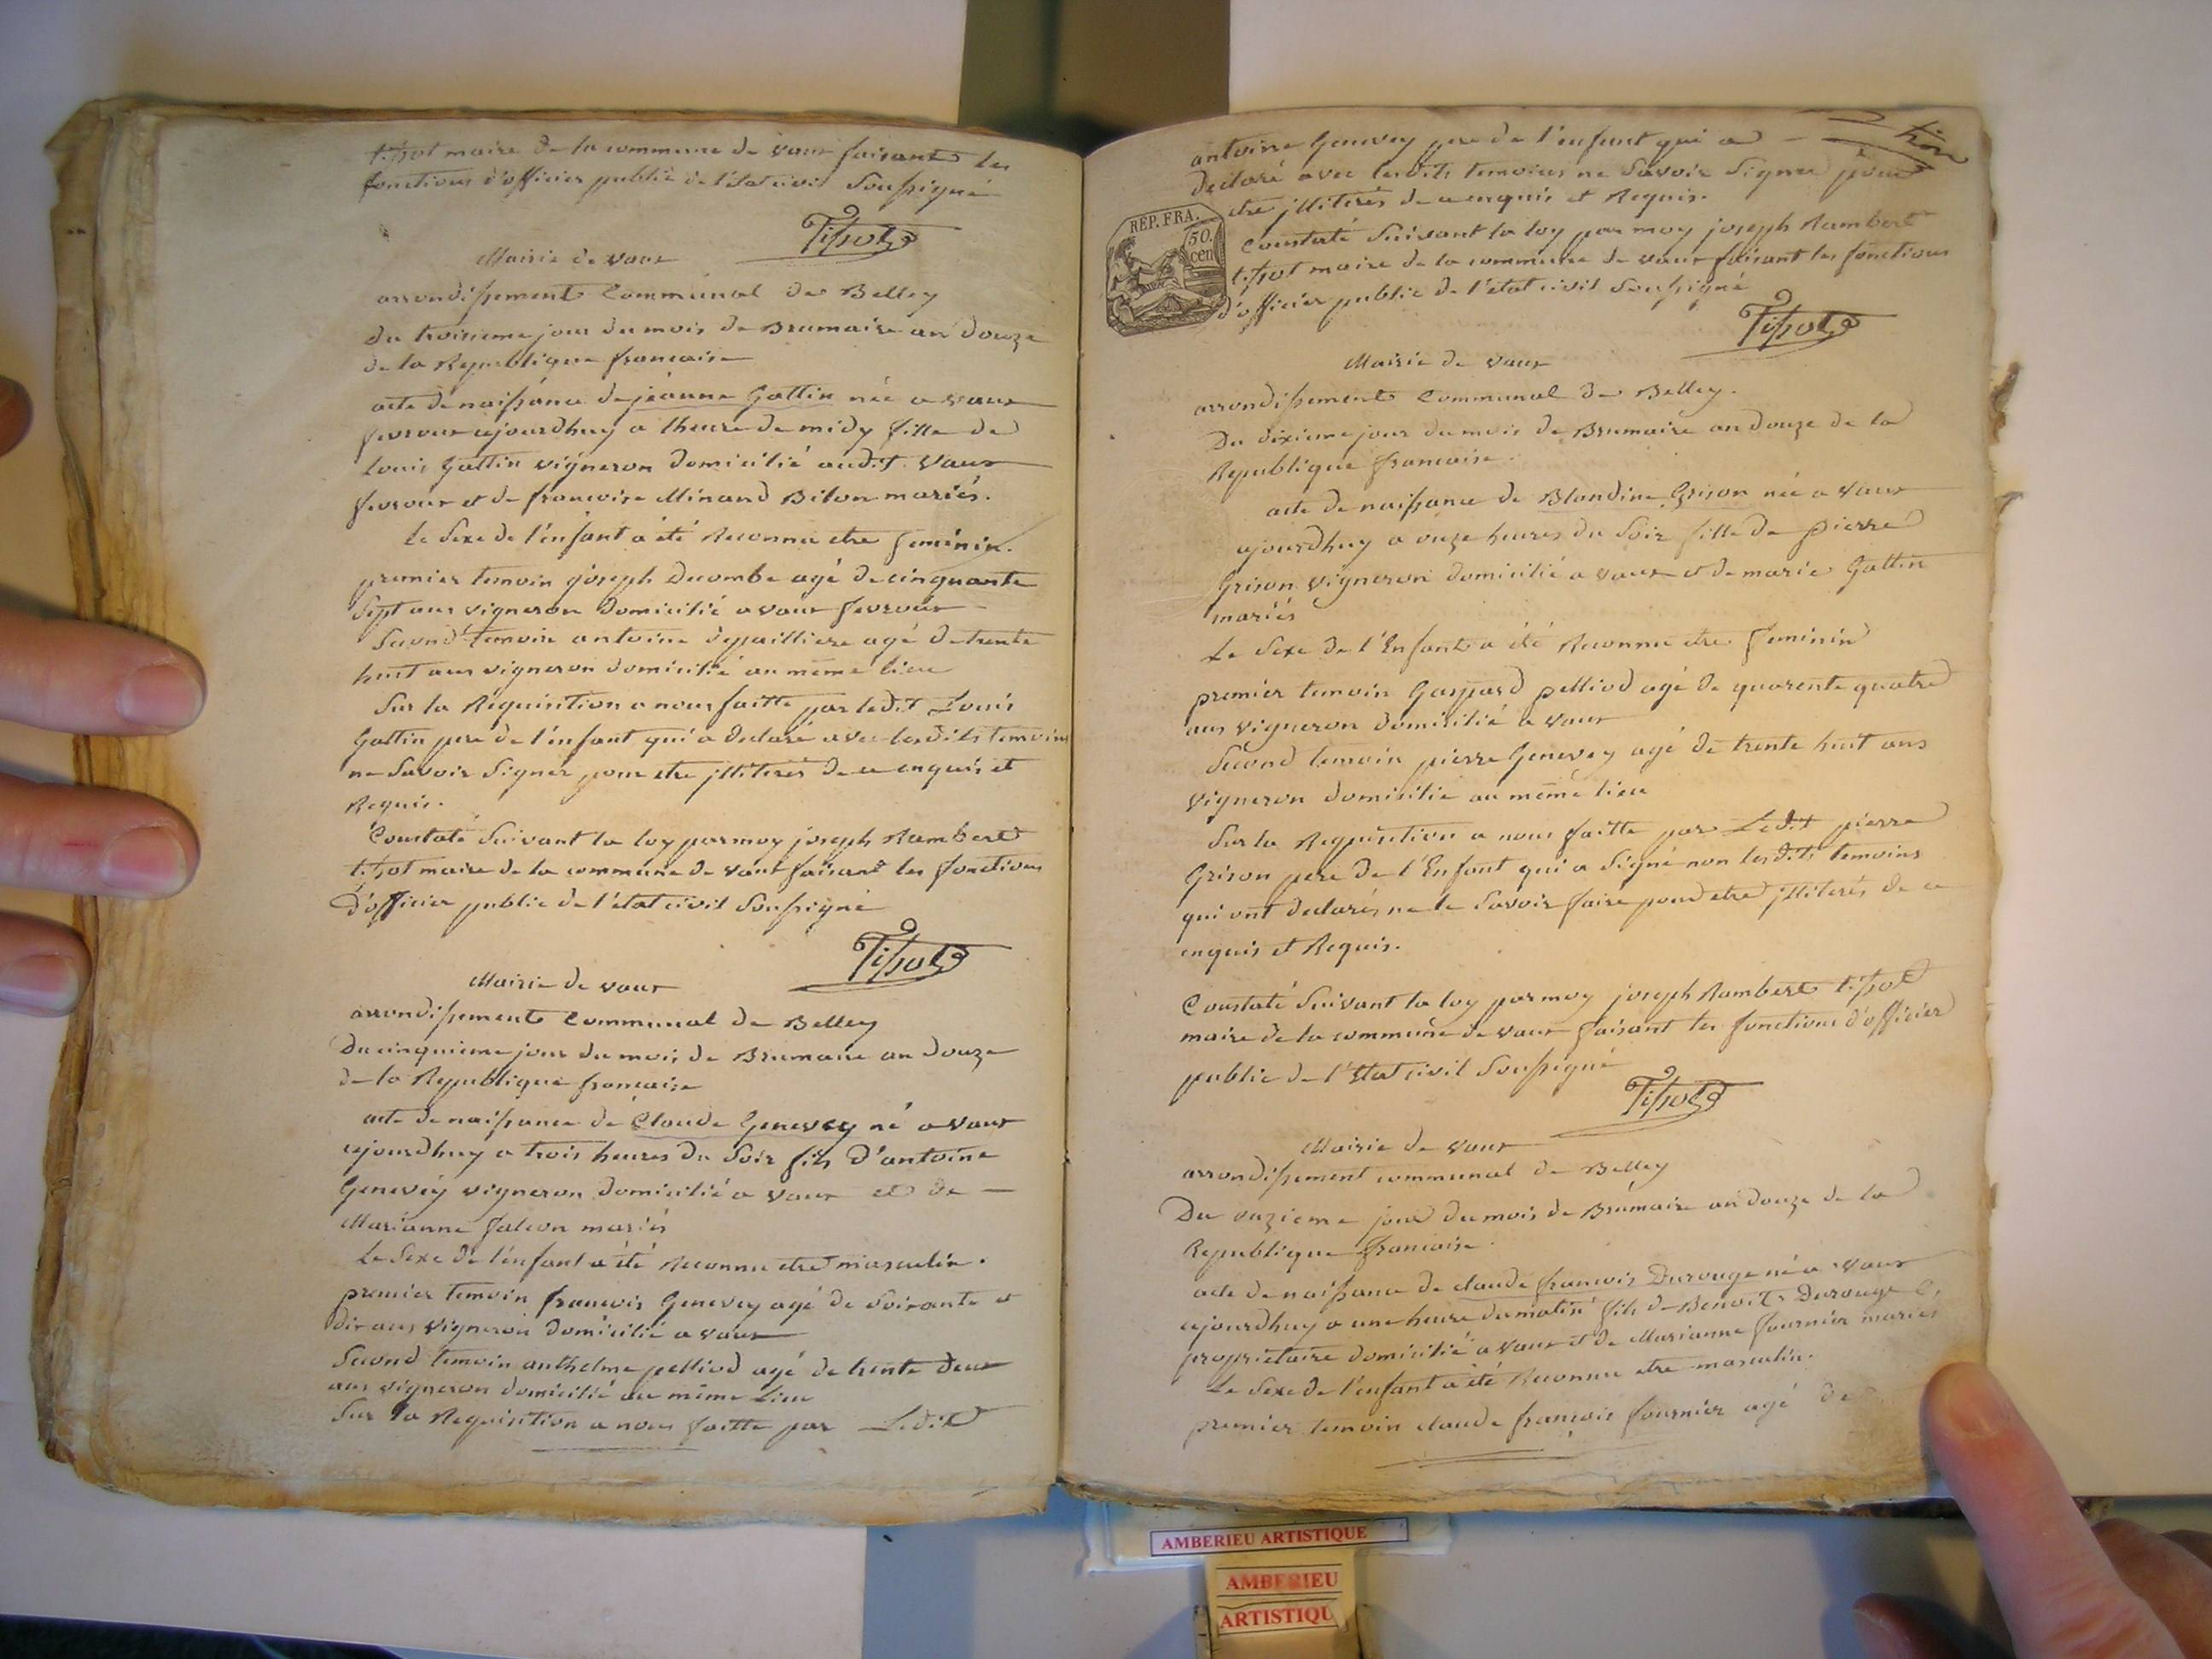 tissot maire de la commune de vaux faisant les
fonctions d'officier public de l'état civil Soussigné
Tissot
Mairie de vaux
arrondissement Communal de Belley
du troisieme jour du mois de Brumaire an douze
de la Republique francaise
acte de naissance de jeanne Gattin née a vaux
fevroux ajourdhuy a lheure de midy fille de
Louis Gattin vigneron domicilié audit vaux
fevroux et de francoise Minand Bilon mariés.
Le Sexe de l'enfant a été Reconnu etre feminin.
premier temoin joseph Decombe agé de cinquante
Sept ans vigneron domicilié a vaux fevroux
Second temoin antoine depailliere agé de trente
huit ans vigneron domicilié au même lieu
Sur la Requisition a nous faitte par ledit Louis
Gattin pere de l'enfant qui a declaré avec lesdits temoins
ne Savoir Signer pour etre illiterés de ce enquis et
Requis.
Constaté Suivant la loy par moy joseph Rambert
tissot maire de la commune de vaux faisant les fonctions
d'officier public de l'état civil Soussigné
Tissot
Mairie de vaux
arrondissement Communal de Belley
Du cinquieme jour du mois de Brumaire an douze
de la Republique francaise
acte de naissance de Claude Genevey né a vaux
ajourdhuy a trois heures du Soir fils d'antoine
Genevey vigneron domicilié a vaux et de
Marianne falcon mariés
Le Sexe de l'enfant a été Reconnu etre masculin.
premier temoin francois Genevey agé de Soixante et
dix ans vigneron domicilié a vaux
Second temoin anthelme pelliod agé de trente deux
ans vigneron domicilié au même lieu
Sur la Requisition a nous faitte par Ledit
antoine Genevey pere de l'enfant qui a
declaré avec lesdits temoins ne Savoir Signer pour
etre illiterés de ce enquis et Requis.
REP. FRA.
50.
cen
Constaté Suivant la loy par moy joseph Rambert
tissot maire de la commune de vaux faisant les fonctions
d'officier public de l'état civil Soussigné
Tissot
Mairie de vaux
arrondissement Communal de Belley.
Du dixieme jour du mois de Brumaire an douze de la
Republique francaise.
acte de naissance de Blondine Grison née a vaux
ajourdhuy a onze heures du Soir fille de pierre
Grison vigneron domicilié a vaux et de marie Gattin
mariés
Le Sexe de l'Enfant a été Reconnu etre feminin
premier temoin Gaspard pelliod agé de quarente quatre
ans vigneron domicilié a vaux
Second temoin pierre Genevey agé de trente huit ans
vigneron domicilié au même lieu
Sur la Requisition a nous faitte par Ledit pierre
Grison pere de l'Enfant qui a Signé non lesdits temoins
qui ont declarés ne le Savoir faire pour etre illiterés de ce
enquis et Requis.
Constaté Suivant la loy par moy joseph Rambert tissot
maire de la commune de vaux faisant les fonctions d'officier
public de l'Etat civil Soussigné
Tissot
Mairie de vaux
arrondissement communal de Belley
Du onzieme jour du mois de Brumaire an douze de la
Republique francaise.
acte de naissance de claude francois Durouge né a vaux
ajourdhuy a une heure du matin fils de Benoit Durouge
proprietaire domicilié a vaux et de Marianne fournier mariés
Le Sexe de l'enfant a été Reconnu etre masculin.
premier temoin claude françois fournier agé de
AMBERIEU ARTISTIQUE
AMBERIEU
ARTISTIQU